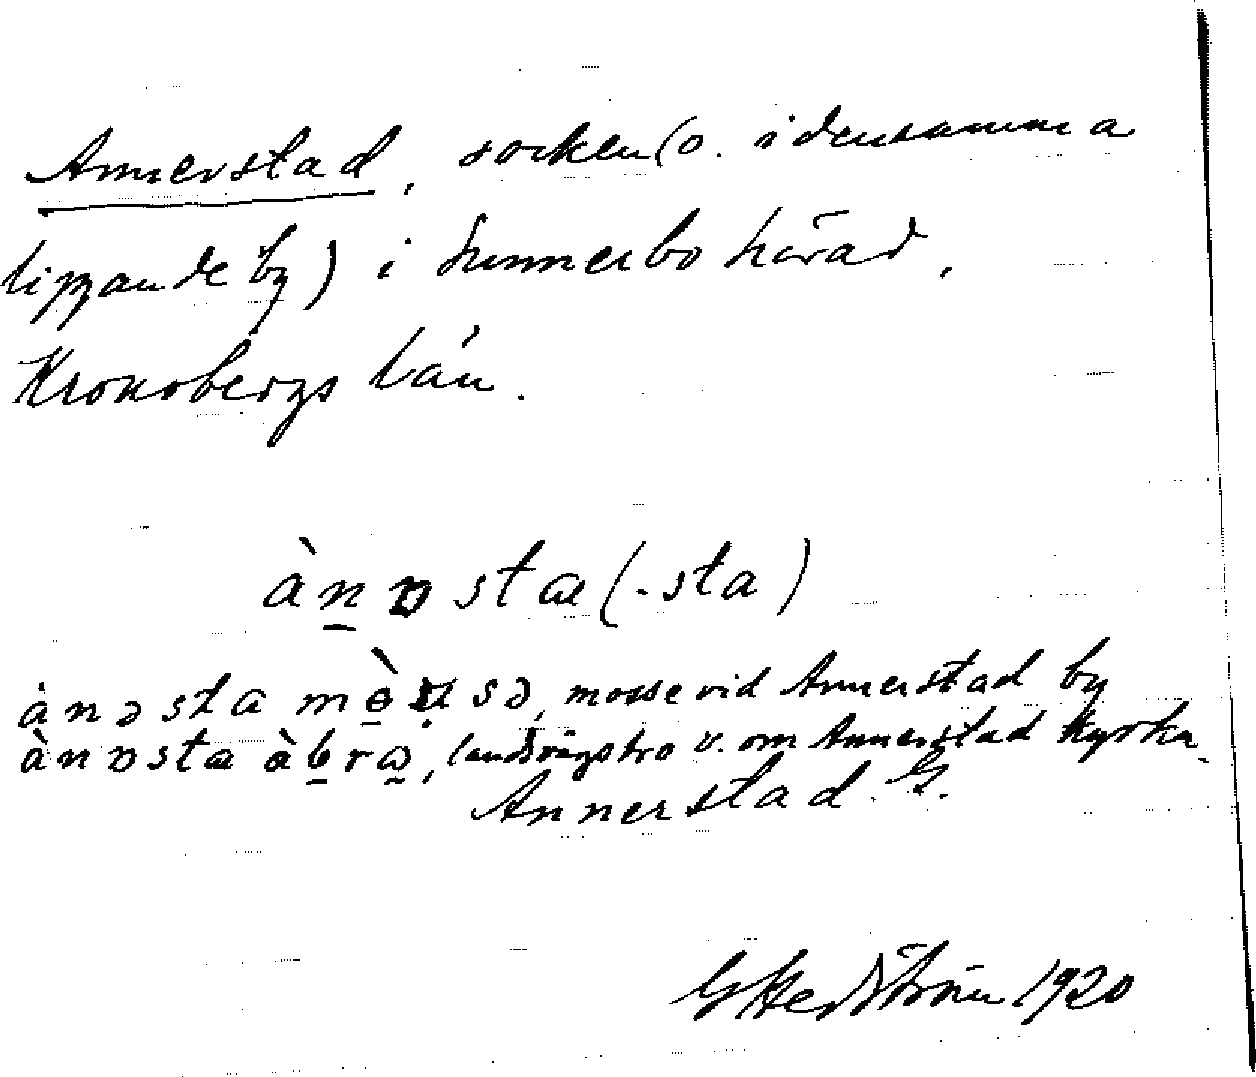 Annerstad, socken (o. i densamma
liggande by) i Sunnerbo härad,
Kronobergs län.
ànʋstæ (-sta)
ànəsta mòssə, mosse vid Annerstad by
ànʋstæ àbrα, landsvägsbro v. om Annerstad Kyrka.
Annerstad. G.
G Hedström 1920